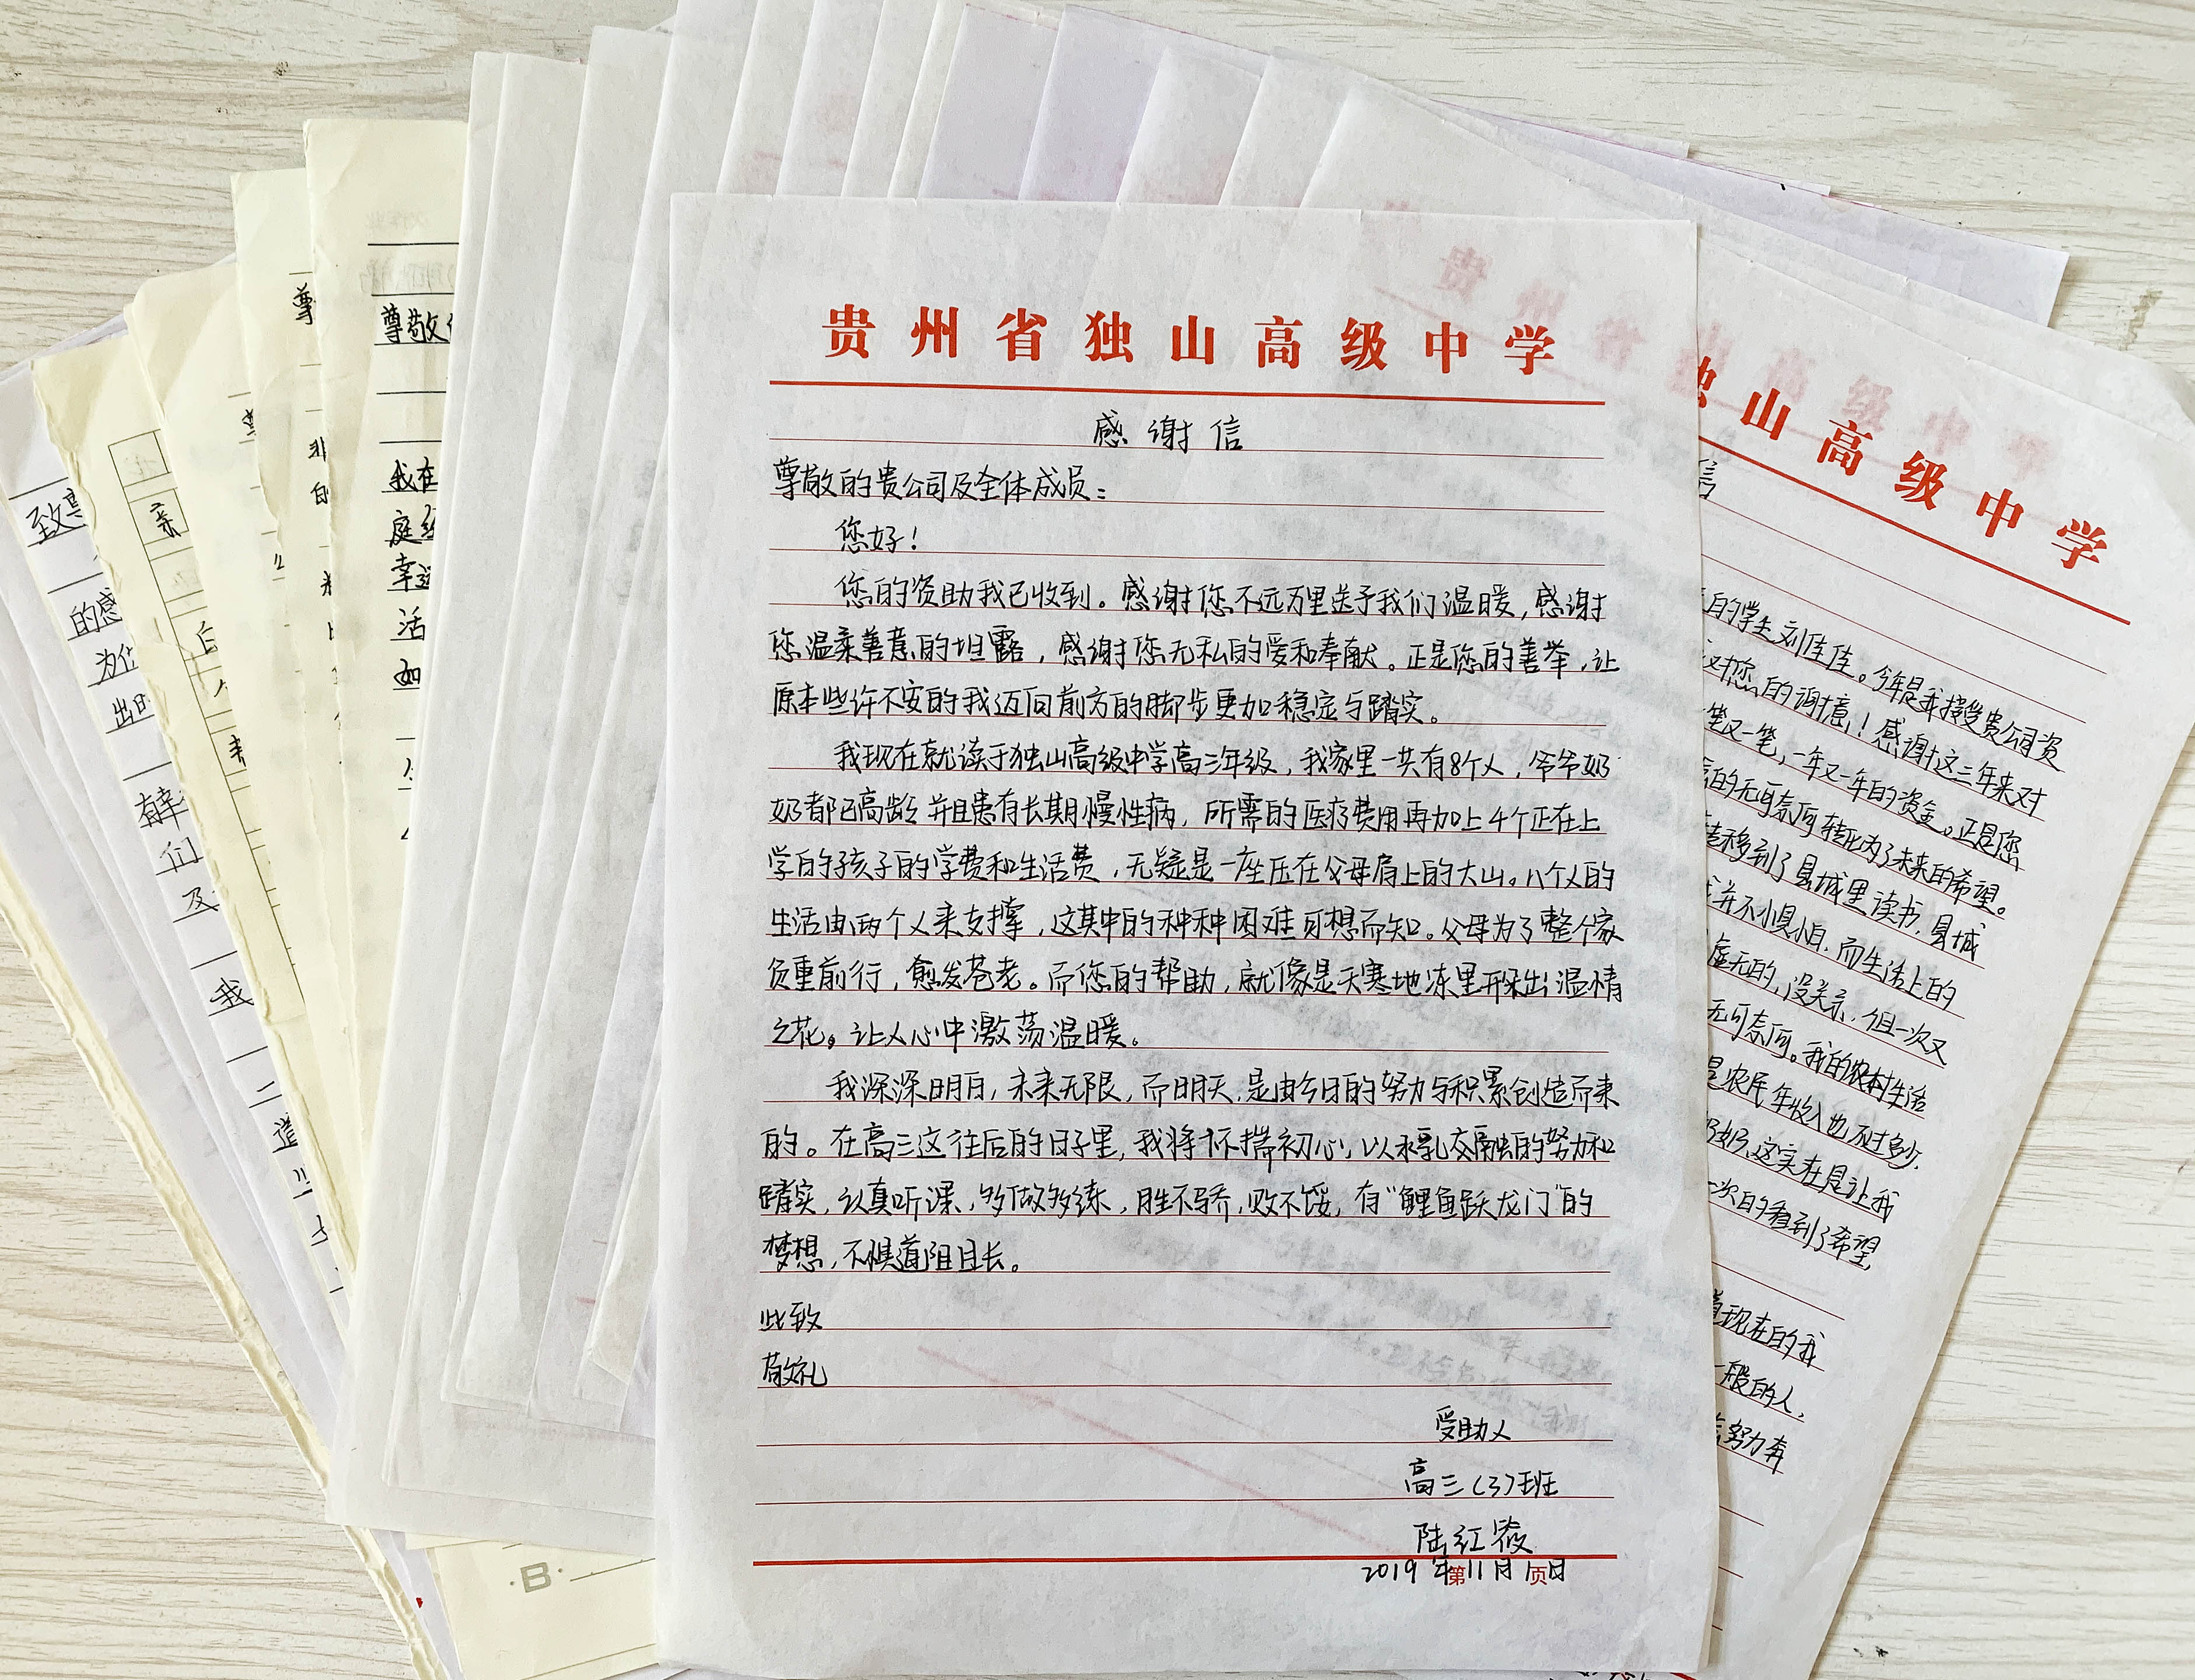 贵州省独山高级中学
感谢信
尊敬的贵公司及全体成员：
您好！
您的资助我已收到。感谢您不远万里送予我们温暖，感谢
您温柔善意的坦露，感谢您无私的爱和奉献。正是您的善举，让
原本些许不安的我迈向前方的脚步更加稳定与踏实。
我现在就读于独山高级中学高三年级，我家里一共有8个人，爷爷奶
奶都已高龄并且患有长期慢性病，所需的医疗费用再加上4个正在上
学的孩子的学费和生活费，无疑是一座压在父母肩上的大山。八个人的
生活由两个人来支撑，这其中的种种困难可想而知。父母为了整个家
负重前行，愈发苍老。而您的帮助，就像是天寒地冻里开出温情
之花。让人心中激荡温暖。
我深深明白，未来无限，而明天，是由今日的努力与积累创造而来
的。在高三这往后的日子里，我将怀揣初心，以水乳交融的努力和
踏实，认真听课，多做多练，胜不骄，败不馁，有“鲤鱼跃龙门”的
梦想，不惧道阻且长。
此致
敬礼
受助人
高三（3）班
陆红
2019年11月1日
第 页
山高级中学
信
的学生刘佳佳。今年是我接受贵公司资
对您的谢意！感谢这三年来对
笔又一笔，一年又一年的资金。正是您
的无可奈何转化为了未来的希望。
移到了县城里读书，县城
并不惧怕，而生活上的
虚无的，没关系，但一次又
无可奈何。我的农村生活
是农民，年收入也不过多少，
奶奶，这实在是让我
次的看到了希望，
现在的我
一般的人，
努力奔
尊敬
我在
庭
幸运
活
如
尊
非
的
亲
致
的感
为
出
有幸
们
及
我
二
道
B